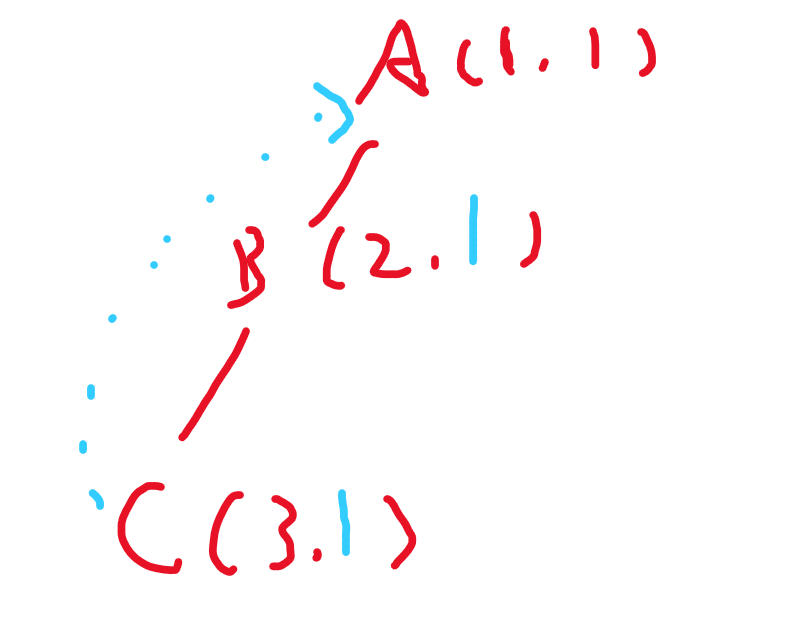 A(1.1)
B(2.1)
C(3.1)